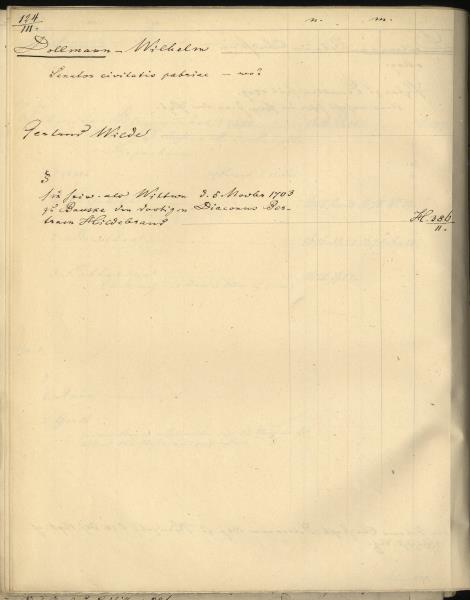 124
III.
n. m.
Dollmann - Wilhelm
Senator civitatis patriae - wo?
Gertrud Wilde
sie heir. als Wittwe d. 5 Novbr 1703
zu Bauske den dortigen Diaconus Ber-
tram Hildebrand
H. 386
II.